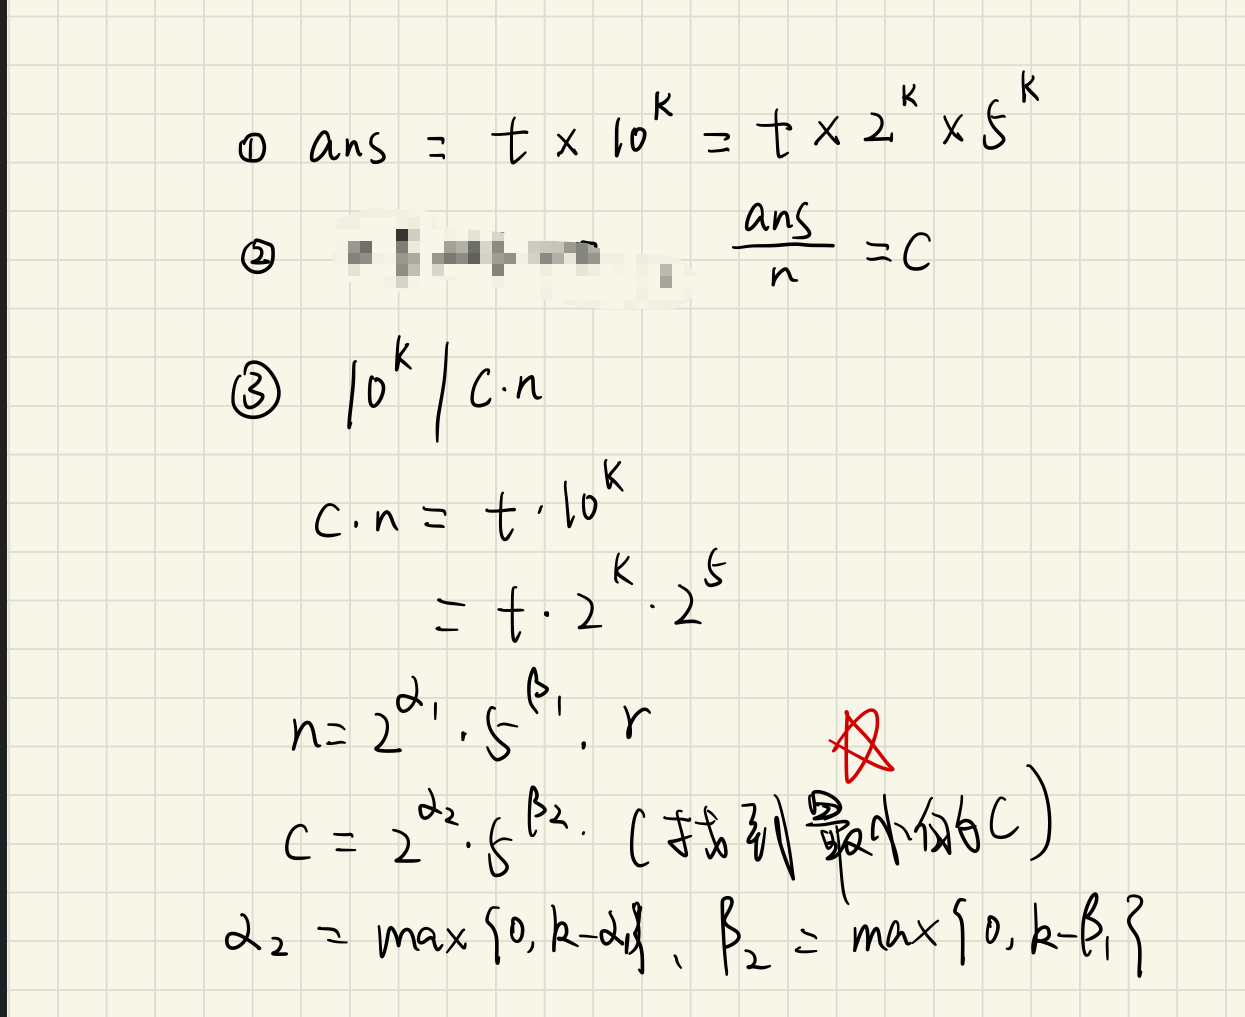 ① ans = t × 10^k = t × 2^k × 5^k
② ans/n = C
③ 10^k | C·n
C·n = t·10^k
= t·2^k·2^5
n = 2^α₁·5^β₁·r
C = 2^α₂·5^β₂. (找到最小的C)
α₂ = max{0, k-α₁}、β₂ = max{0, k-β₁}